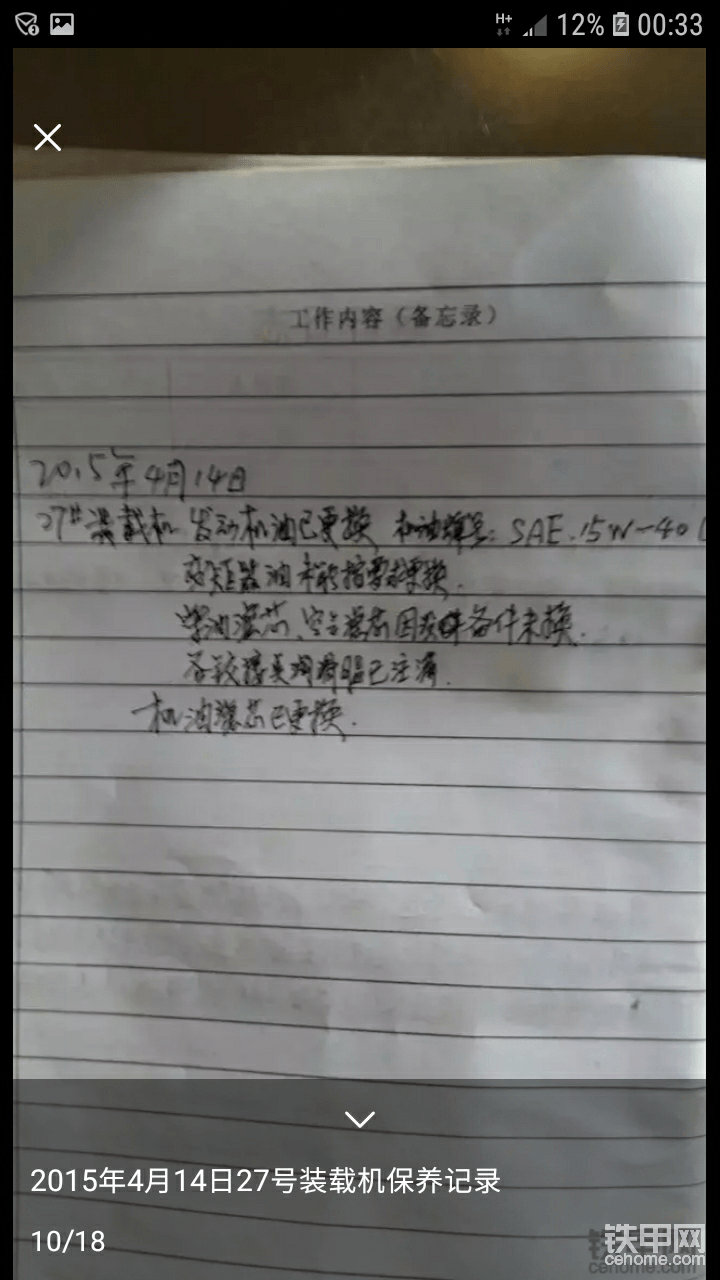 H+ 12% 00:33
工作内容（备忘录）
2015年4月14日
27#装载机 发动机油已更换 机油牌号: SAE.15W-40
变矩器油未能按需求更换.
柴油滤芯、空气滤芯因无备件未换.
各铰接点润滑脂已注满.
机油滤芯已更换.
2015年4月14日27号装载机保养记录
10/18
铁甲网
cehome.com